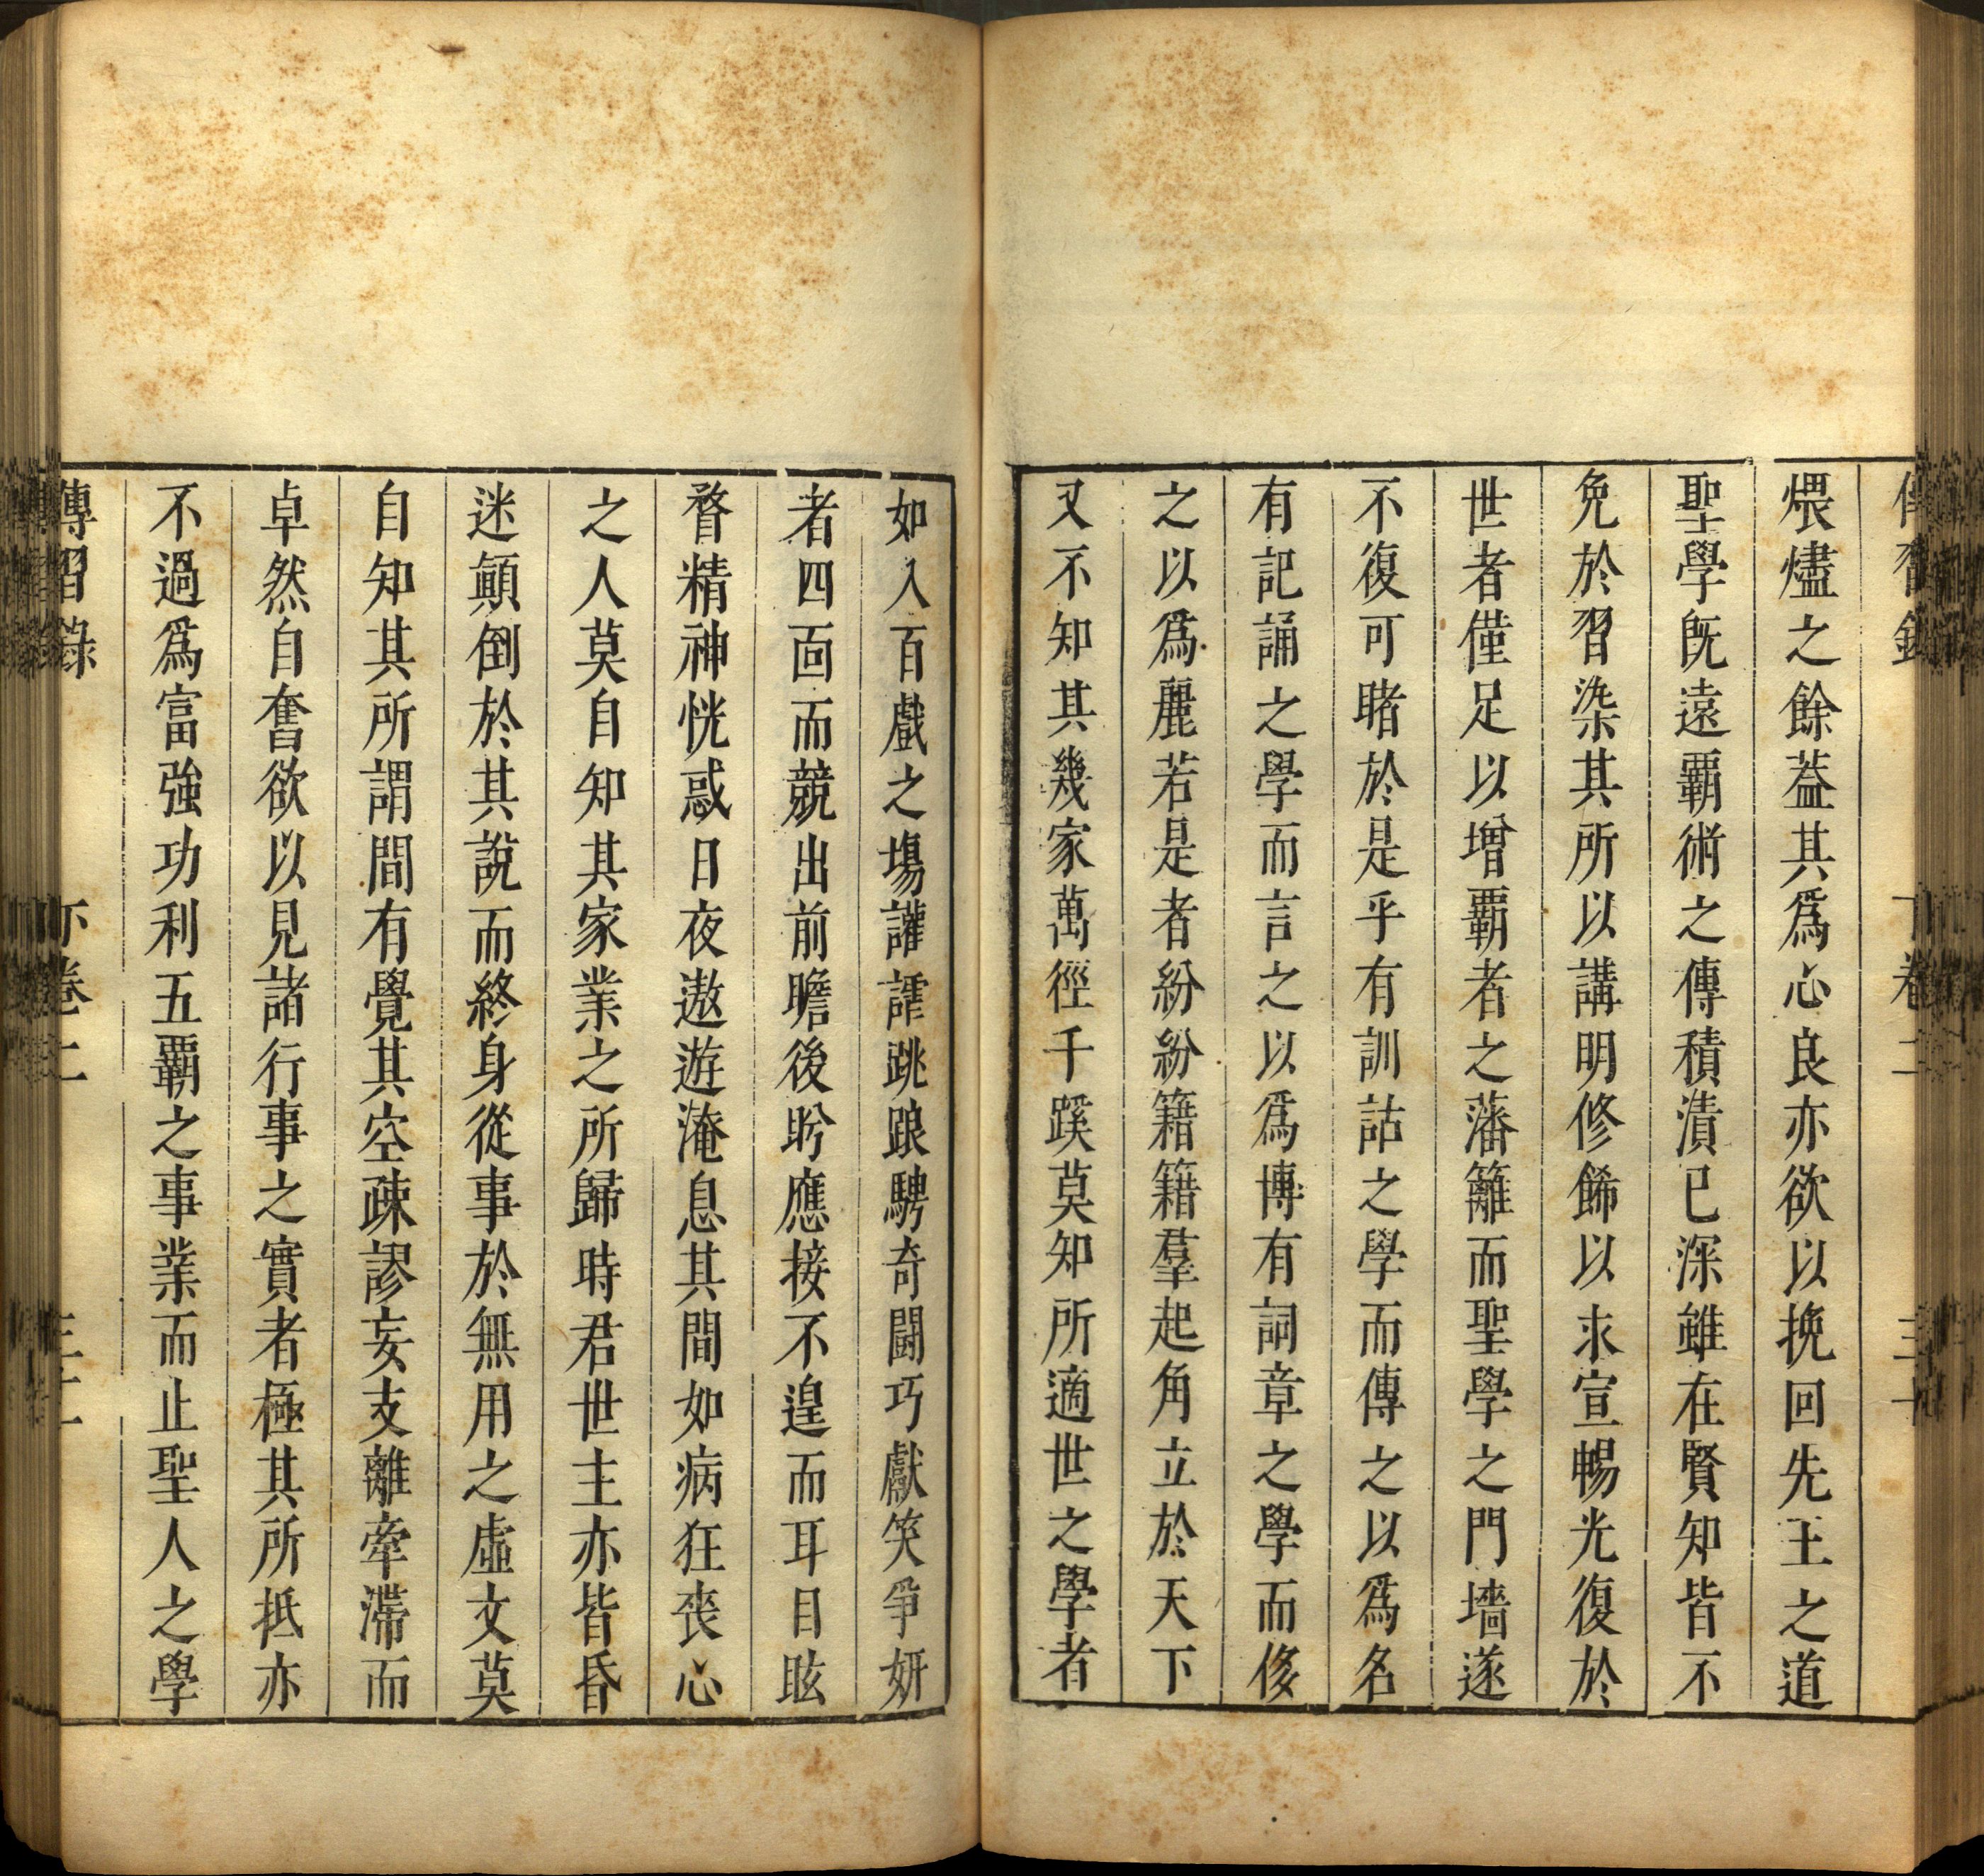 傳習錄 卷二
煨燼之餘葢其爲心良亦欲以挽回先王之道
聖學旣遠霸術之傳積漬已深雖在賢知皆不
免於習染其所以講明修餙以求宣暢光復於
世者僅足以增霸者之藩籬而聖學之門墻遂
不復可睹於是乎有訓詁之學而傳之以爲名
有記誦之學而言之以爲博有詞章之學而侈
之以爲麗若是者紛紛籍籍羣起角立於天下
又不知其幾家萬徑千蹊莫知所適世之學者
如入百戲之塲讙謔跳踉騁奇鬬巧獻笑爭妍
者四靣而競出前瞻後盻應接不遑而耳目眩
瞀精神恍惑日夜遨遊淹息其間如病狂喪心
之人莫自知其家業之所歸時君世主亦皆昏
迷顛倒於其說而終身從事於無用之虛文莫
自知其所謂間有覺其空疎謬妄支離牽滯而
卓然自奮欲以見諸行事之實者極其所抵亦
不過爲富強功利五霸之事業而止聖人之學
傳習錄 卷二